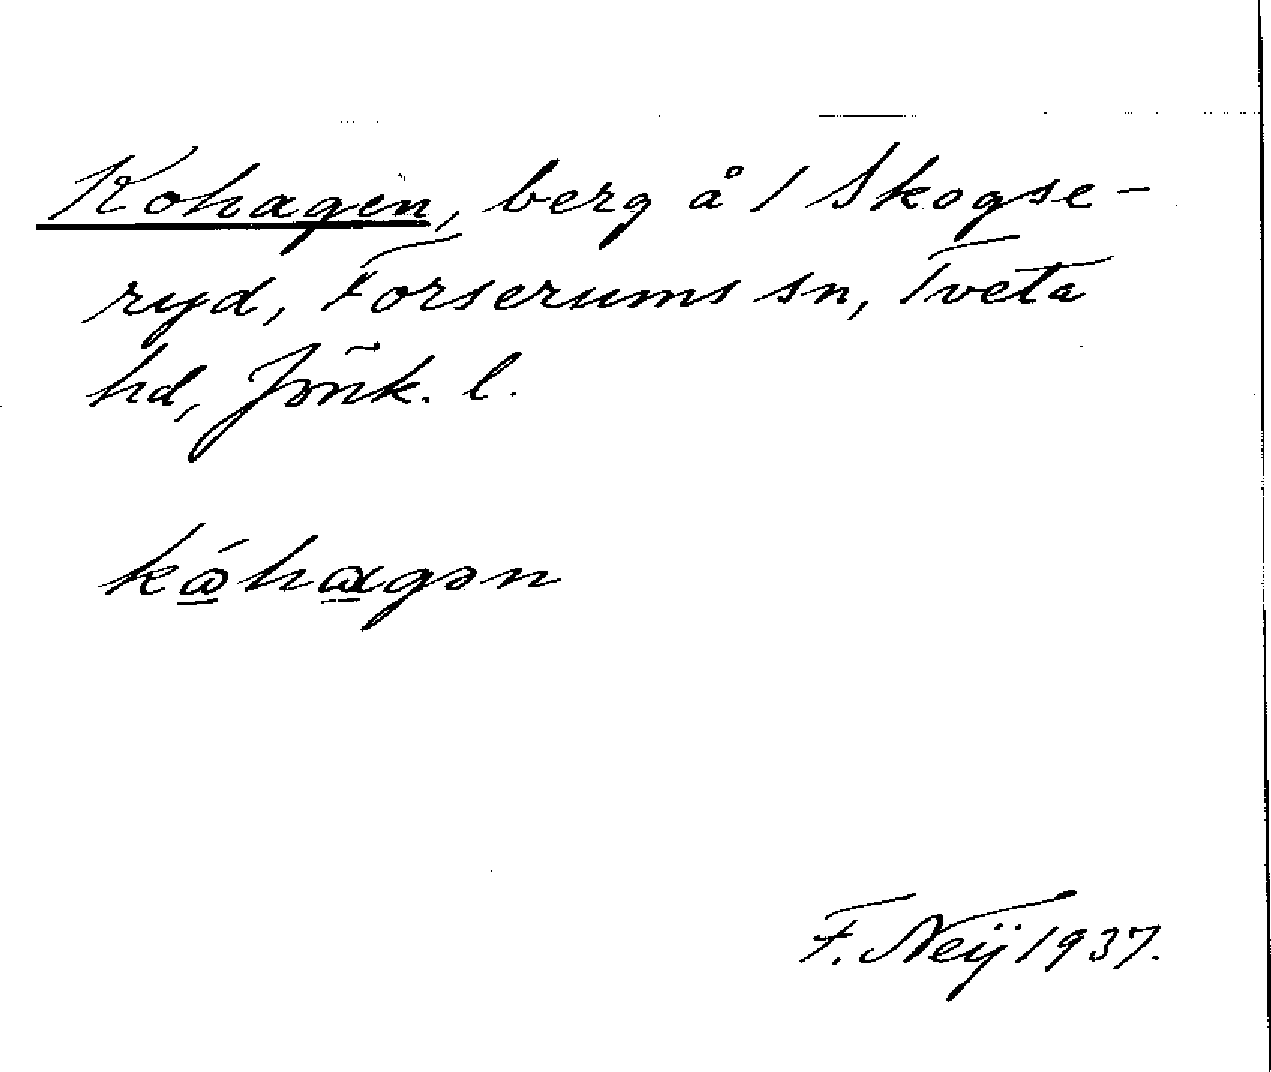 Kohagen, berg å 1 Skogse-
ryd, Forserums sn, Tveta
hd, Jönk. l.
kǻhagən
F. Neij 1937.